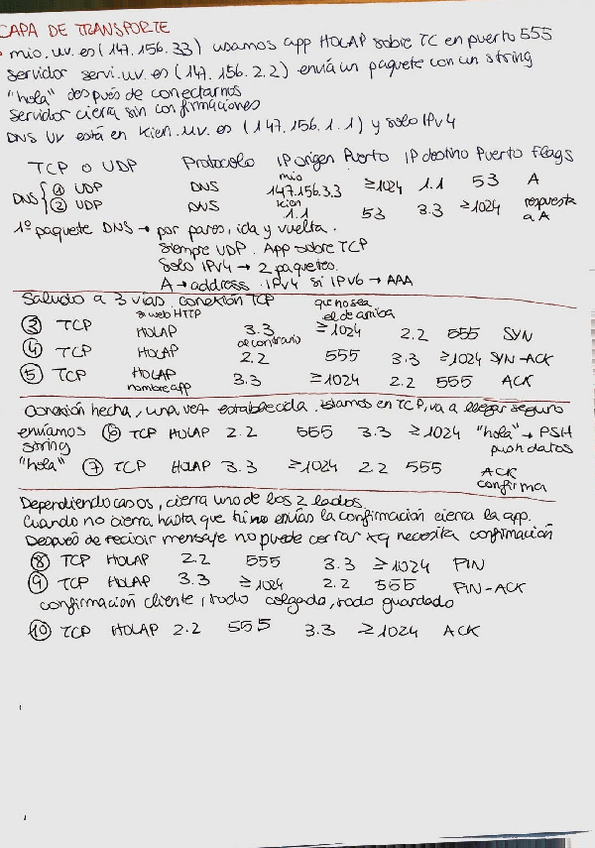 CAPA DE TRANSPORTE
• mio.uv.es (147.156.33) usamos app HOLAP sobre TC en puerto 555
Servidor servi.uv.es (147.156.2.2) envía un paquete con un string
"hola" después de conectarnos
Servidor cierra sin confirmaciones
DNS UV está en kien.uv.es (147.156.1.1) y solo IPv4
TCP o UDP Protocolo IP origen Puerto IP destino Puerto flags
DNS { ① UDP DNS mio 147.156.3.3 ≥1024 1.1 53 A
② UDP DNS kien 1.1 53 3.3 ≥1024 respuesta a A
1º paquete DNS → por pares, ida y vuelta.
Siempre UDP. App sobre TCP
Solo IPv4 → 2 paquetes.
A → address IPv4 si IPv6 → AAA
Saludo a 3 vías. conexión TCP
si web HTTP que no sea el de arriba
③ TCP HOLAP 3.3 ≥1024 2.2 555 SYN
al contrario
④ TCP HOLAP 2.2 555 3.3 ≥1024 SYN-ACK
⑤ TCP HOLAP 3.3 ≥1024 2.2 555 ACK
nombre app
Conexión hecha, una vez establecida. Estamos en TCP, va a llegar seguro
envíamos string "hola"
⑥ TCP HOLAP 2.2 555 3.3 ≥1024 "hola" → PSH push datos
⑦ TCP HOLAP 3.3 ≥1024 2.2 555 ACK confirma
Dependiendo casos, cierra uno de los 2 lados.
Cuando no cierra hasta que envías la confirmación cierra la app.
Después de recibir mensaje no puede cerrar xq necesita confirmación
⑧ TCP HOLAP 2.2 555 3.3 ≥1024 FIN
⑨ TCP HOLAP 3.3 ≥1024 2.2 555 FIN-ACK
confirmación cliente, todo colgado, todo guardado
⑩ TCP HOLAP 2.2 555 3.3 ≥1024 ACK